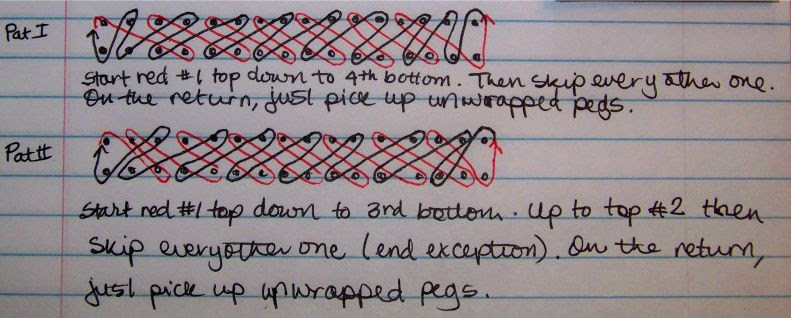 Pat I
Start red #1 top down to 4th bottom. Then skip every other one.
On the return, just pick up unwrapped pegs.
Pat II
Start red #1 top down to 3rd bottom. Up to top #2 then
skip every other one (end exception). On the return,
just pick up unwrapped pegs.